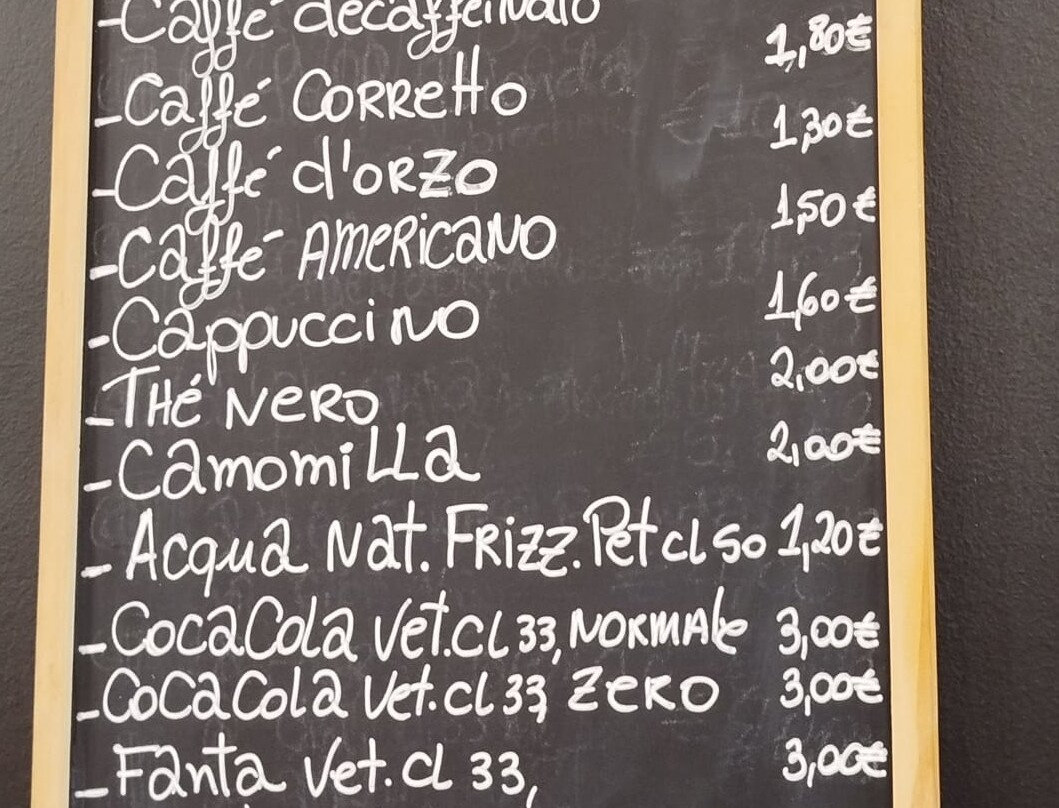 -Caffé decaffeinato
-Caffé CORRettO 1,80€
-Caffé d'ORZO 1,30€
-Caffé AMeRICaNO 1,50€
-Cappuccino 1,60€
-THé NeRO 2,00€
-CamomiLLa 2,00€
- Acqua Nat. FRizz. Pet cl 50 1,20€
-CocaCola Vet.cl 33, NORMALe 3,00€
-CoCaCola Vet.cl 33, ZeRO 3,00€
-Fanta Vet.cl 33, 3,00€